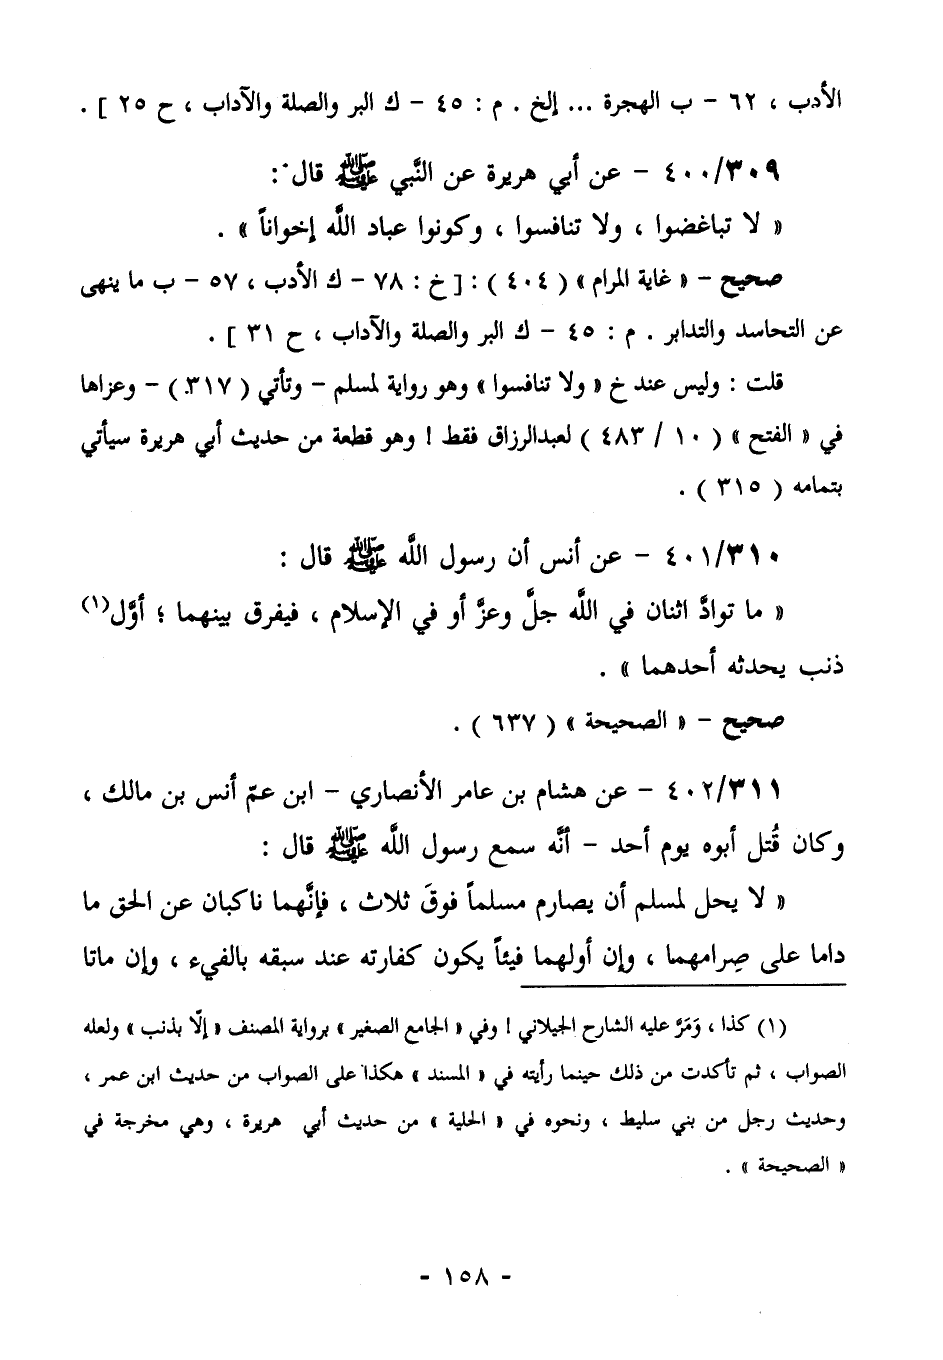 الأدب ، ٦٢ - ب الهجرة ... إلخ . م : ٤٥ - ك البر والصلة والآداب ، ح ٢٥ ] .
٤٠٠/٣٠٩ - عن أبي هريرة عن النَّبي ﷺ قال :
« لا تباغضوا ، ولا تنافسوا ، وكونوا عباد اللَّه إخواناً » .
صحيح - « غاية المرام » ( ٤٠٤ ) : [ خ : ٧٨ - ك الأدب ، ٥٧ - ب ما ينهى
عن التحاسد والتدابر . م : ٤٥ - ك البر والصلة والآداب ، ح ٣١ ] .
قلت : وليس عند خ « ولا تنافسوا » وهو رواية لمسلم - وتأتي ( ٣١٧ ) - وعزاها
في « الفتح » ( ١٠ / ٤٨٣ ) لعبدالرزاق فقط ! وهو قطعة من حديث أبي هريرة سيأتي
بتمامه ( ٣١٥ ) .
٤٠١/٣١٠ - عن أنس أن رسول اللَّه ﷺ قال :
« ما توادَّ اثنان في اللَّه جلَّ وعزَّ أو في الإسلام ، فيفرق بينهما ؛ أوَّل(١)
ذنب يحدثه أحدهما » .
صحيح - « الصحيحة » ( ٦٣٧ ) .
٤٠٢/٣١١ - عن هشام بن عامر الأنصاري - ابن عمّ أنس بن مالك ،
وكان قُتل أبوه يوم أحد - أنَّه سمع رسول اللَّه ﷺ قال :
« لا يحل لمسلم أن يصارم مسلماً فوقَ ثلاث ، فإنَّهما ناكبان عن الحق ما
داما على صِرامهما ، وإن أولهما فيئاً يكون كفارته عند سبقه بالفيء ، وإن ماتا
(١) كذا ، وَمَرَّ عليه الشارح الجيلاني ! وفي « الجامع الصغير » برواية المصنف « إلّا بذنب » ولعله
الصواب ، ثم تأكدت من ذلك حينما رأيته في « المسند » هكذا على الصواب من حديث ابن عمر ،
وحديث رجل من بني سليط ، ونحوه في « الحلية » من حديث أبي هريرة ، وهي مخرجة في
« الصحيحة » .
- ١٥٨ -